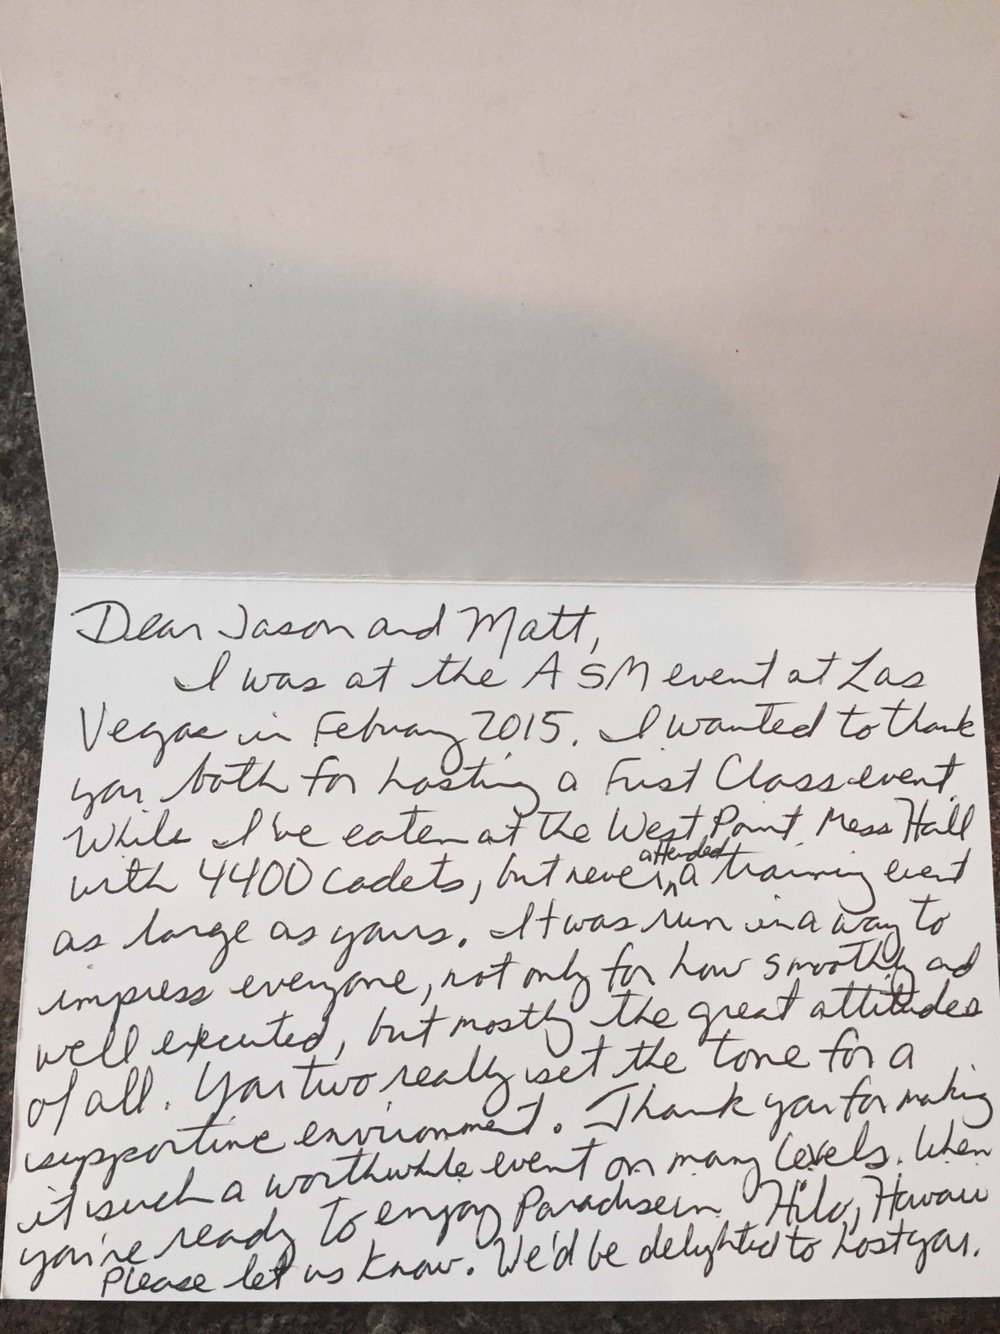 Dear Jason and Matt,
I was at the ASM event at Las
Vegas in February 2015. I wanted to thank
you both for hosting a First Class event.
While I've eaten at the West Point Mess Hall
with 4400 cadets, but never attended a training event
as large as yours. It was run in a way to
impress everyone, not only for how smoothly and
well executed, but mostly the great attitudes
of all. You two really set the tone for a
supportive environment. Thank you for making
it such a worthwhile event on many levels. When
you're ready to enjoy Paradise in Hilo, Hawaii
Please let us know. We'd be delighted to host you.